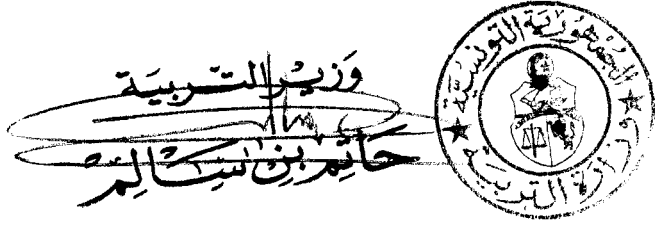 وزير التربية
حاتم بن سالم
الجمهورية التونسية
وزارة التربية